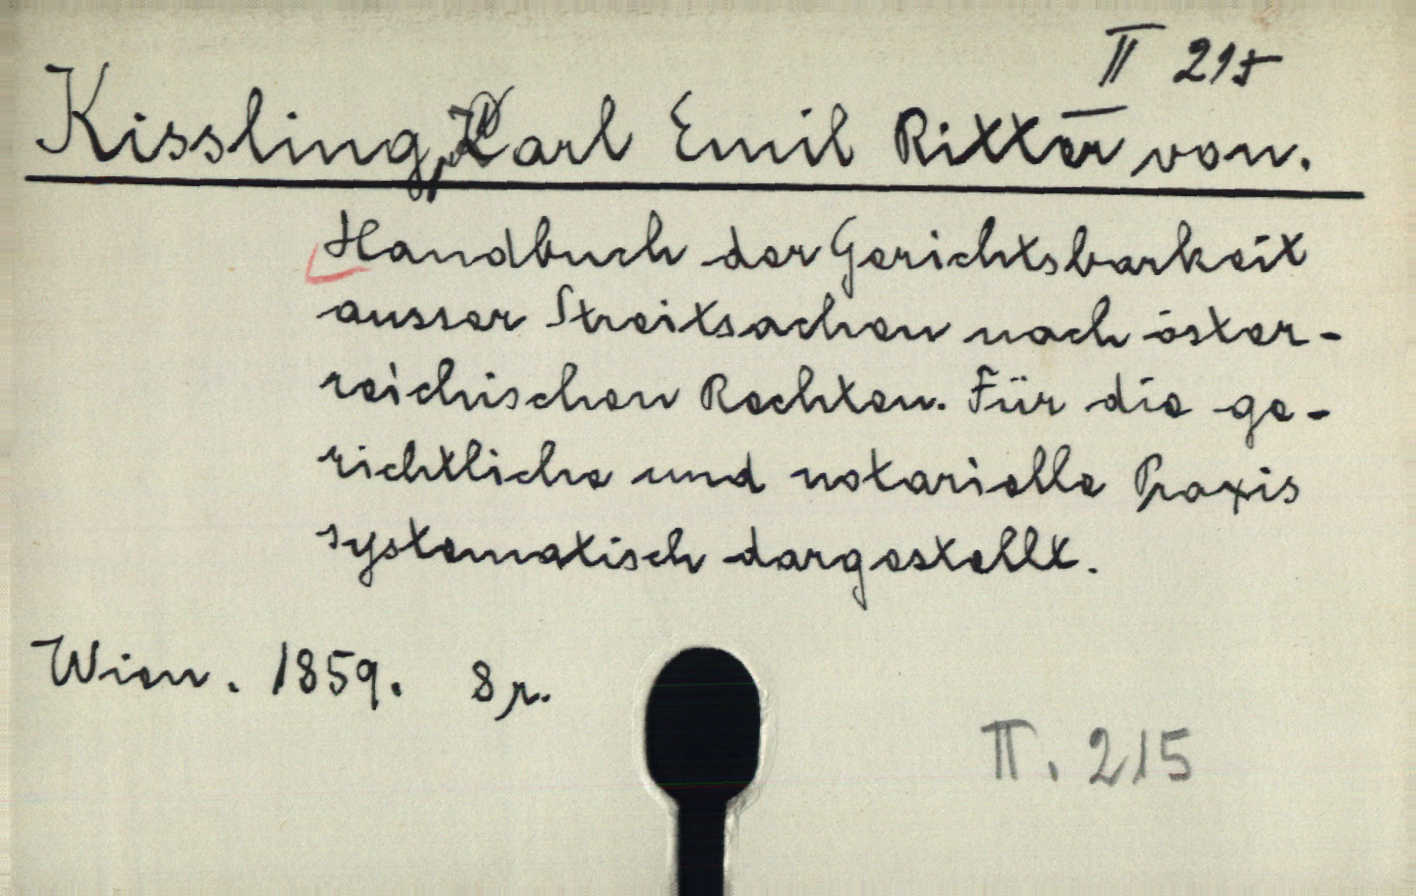 II 215
Kissling, Karl Emil Ritter von.
Handbuch der Gerichtsbarkeit
ausser Streitsachen nach öster-
reichischen Rechten. Für die ge-
richtliche und notarielle Praxis
systematisch dargestellt.
Wien. 1859. 8 r.
II. 215